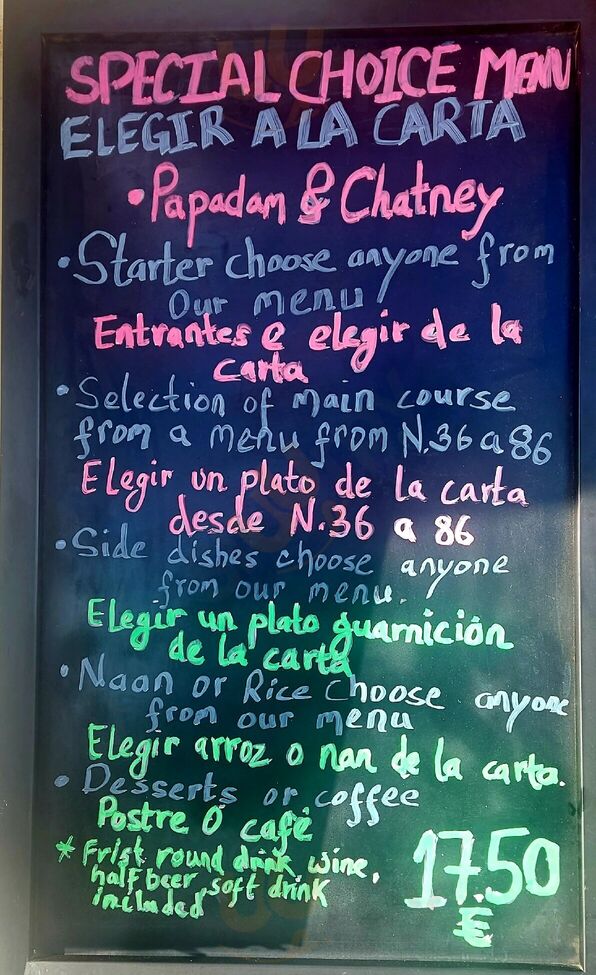 SPECIAL CHOICE MENU
ELEGIR A LA CARTA
• Papadam & Chatney
• Starter choose anyone from
Our menu
Entrantes e elegir de la
carta
• Selection of main course
from a menu from N.36 a 86
Elegir un plato de la carta
desde N.36 a 86
• Side dishes choose anyone
from our menu.
Elegir un plato guarnición
de la carta
• Naan or Rice choose anyone
from our menu
Elegir arroz o nan de la carta.
• Desserts or coffee
Postre O café
* Frist round drink wine,
half beer, soft drink
included
17.50
€